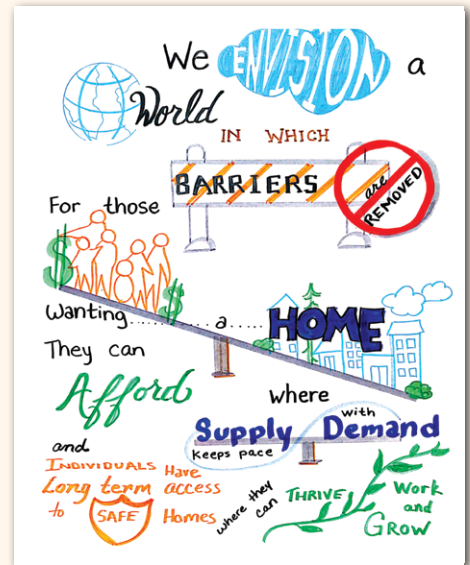 We ENVISION a
World
IN WHICH
BARRIERS are REMOVED
For those
$ $
Wanting......a.....HOME
They can
Afford where
Supply with Demand
Keeps pace
and
INDIVIDUALS Have
Long term access
to SAFE Homes
where they can
THRIVE, Work
and
GROW